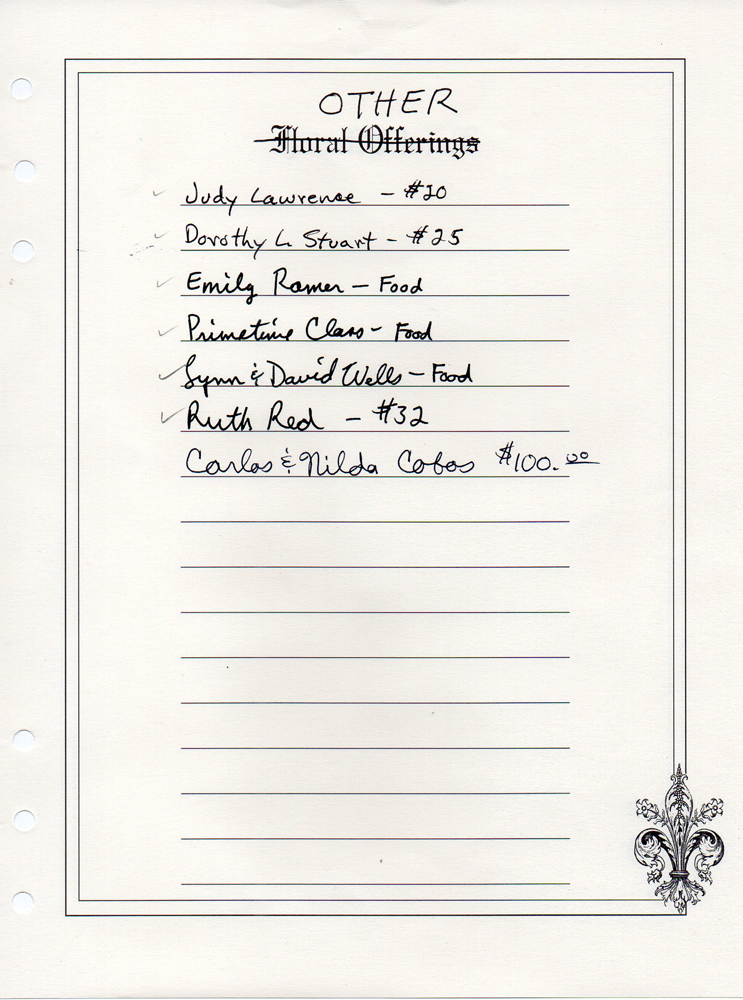 OTHER
Floral Offerings
Judy Lawrence - $20
Dorothy L Stuart - $25
Emily Ramer - Food
Primetime Class - Food
Lynn & David Wells - Food
Ruth Red - $32
Carlos & Nilda Cobos $100.00